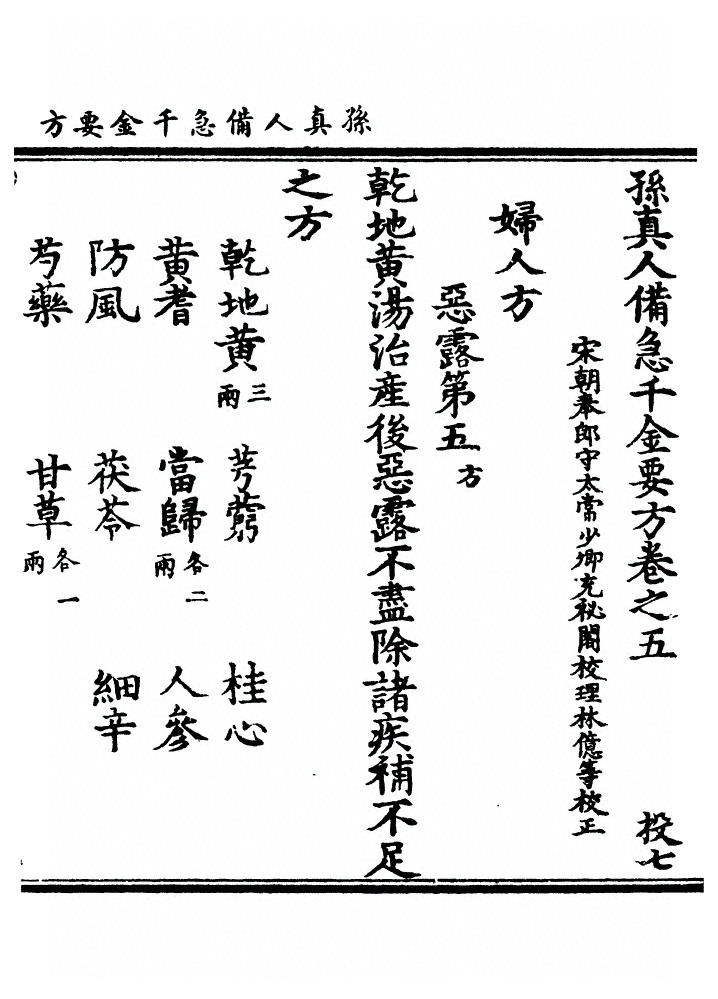 孫真人備急千金要方
孫真人備急千金要方卷之五 投七
宋朝奉郎守太常少卿充秘閣校理林億等校正
婦人方
惡露第五方
乾地黃湯治產後惡露不盡除諸疾補不足
之方
乾地黃三兩 芎藭 桂心
黃耆 當歸各二兩 人參
防風 茯苓 細辛
芍藥 甘草各一兩